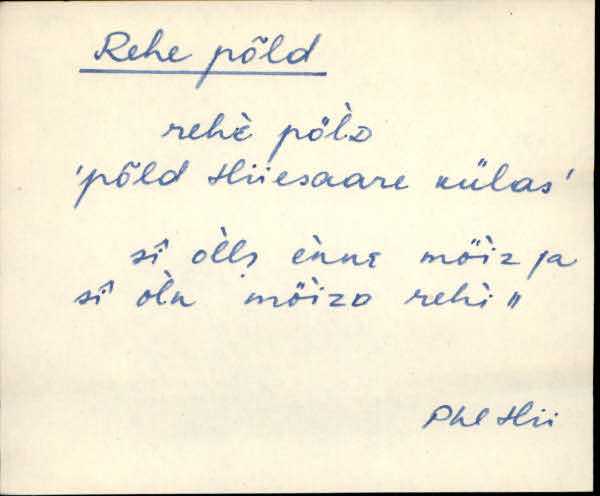 Rehe põld
rehè pö̀lᴅ
'põld Hiiesaare külas'
sî òlls ènne mȫìz ja
sî òln mȫìzᴅ rehì "
Phl Hii